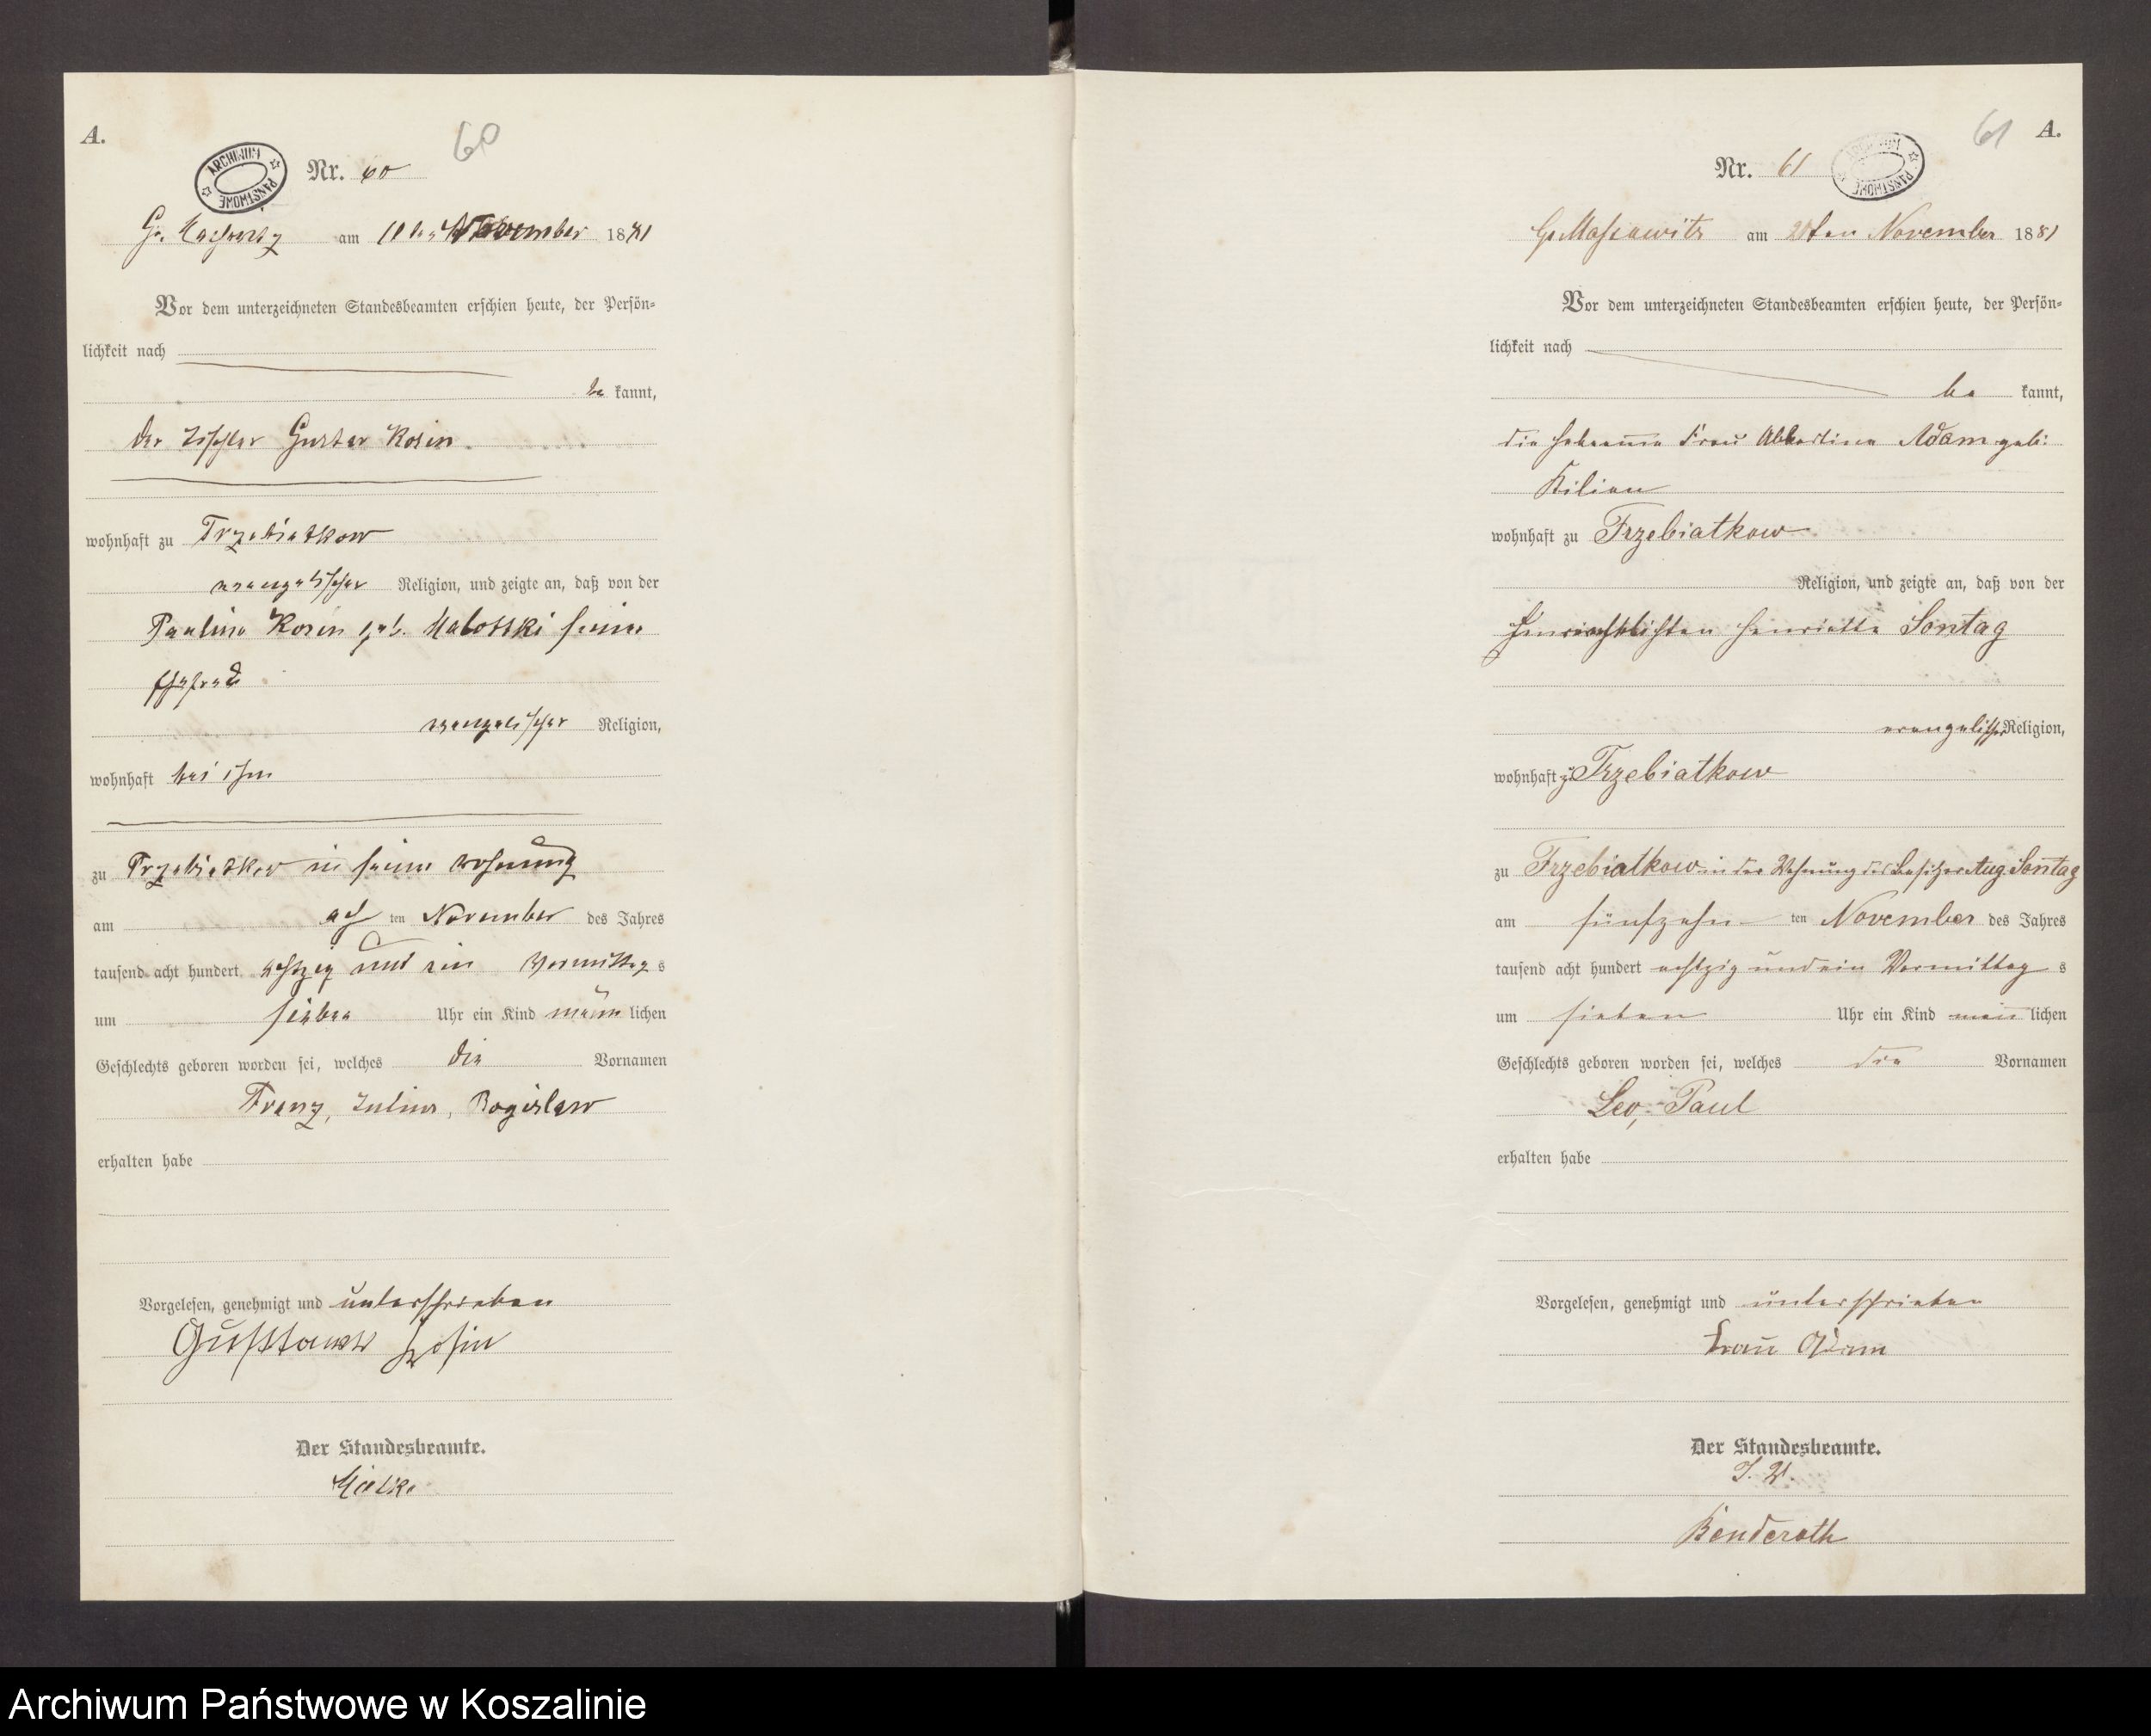 A.
60
ARCHIWUM PAŃSTWOWE
Nr. 60
am November 1881
Vor dem unterzeichneten Standesbeamten erschien heute, der Persön-
lichkeit nach
be kannt,
der Tischler Gustav Rosin
wohnhaft zu Trzebiatkow
evangelischer Religion, und zeigte an, daß von der
Pauline Rosin geb. seine
Ehefrau
evangelischer Religion,
wohnhaft bei ihm
zu Trzebiatkow in seiner Wohnung
am ach ten November des Jahres
tausend acht hundert achtzig und ein Vormittag s
um sieben Uhr ein Kind männ lichen
Geschlechts geboren worden sei, welches die Vornamen
Franz, Julius, Bogislaw
erhalten habe
Vorgelesen, genehmigt und unterschrieben
Rosin
Der Standesbeamte.
61
A.
Nr. 61
ARCHIWUM PAŃSTWOWE
Gr Massowitz am November 1881
Vor dem unterzeichneten Standesbeamten erschien heute, der Persön-
lichkeit nach
be kannt,
die Hebamme Frau Albertine Adam geb:
Kilian
wohnhaft zu Trzebiatkow
Religion, und zeigte an, daß von der
Henriette Sontag
evangelischer Religion,
wohnhaft zu Trzebiatkow
zu Trzebiatkow in der Wohnung des Besitzers Aug. Sontag
am fünfzehn ten November des Jahres
tausend acht hundert achtzig und ein Vormittag s
um sieben Uhr ein Kind männ lichen
Geschlechts geboren worden sei, welches die Vornamen
Leo, Paul
erhalten habe
Vorgelesen, genehmigt und unterschrieben
Frau Adam
Der Standesbeamte.
J. V.
Benderoth
Archiwum Państwowe w Koszalinie